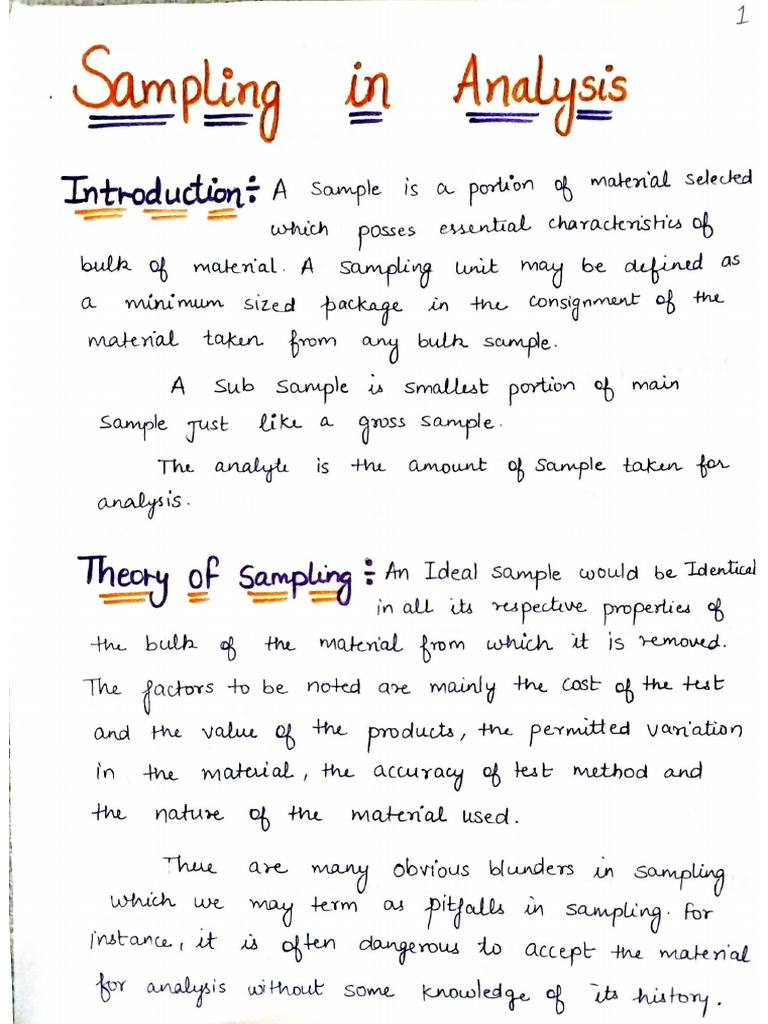 1
Sampling in Analysis
Introduction÷ A sample is a portion of material selected
which posses essential characteristics of
bulk of material. A sampling unit may be defined as
a minimum sized package in the consignment of the
material taken from any bulk sample.
A sub sample is smallest portion of main
sample just like a gross sample.
The analyte is the amount of sample taken for
analysis.
Theory of Sampling÷ An Ideal sample would be Identical
in all its respective properties of
the bulk of the material from which it is removed.
The factors to be noted are mainly the cost of the test
and the value of the products, the permitted variation
in the material, the accuracy of test method and
the nature of the material used.
There are many obvious blunders in sampling
which we may term as pitfalls in sampling. For
instance, it is often dangerous to accept the material
for analysis without some knowledge of its history.